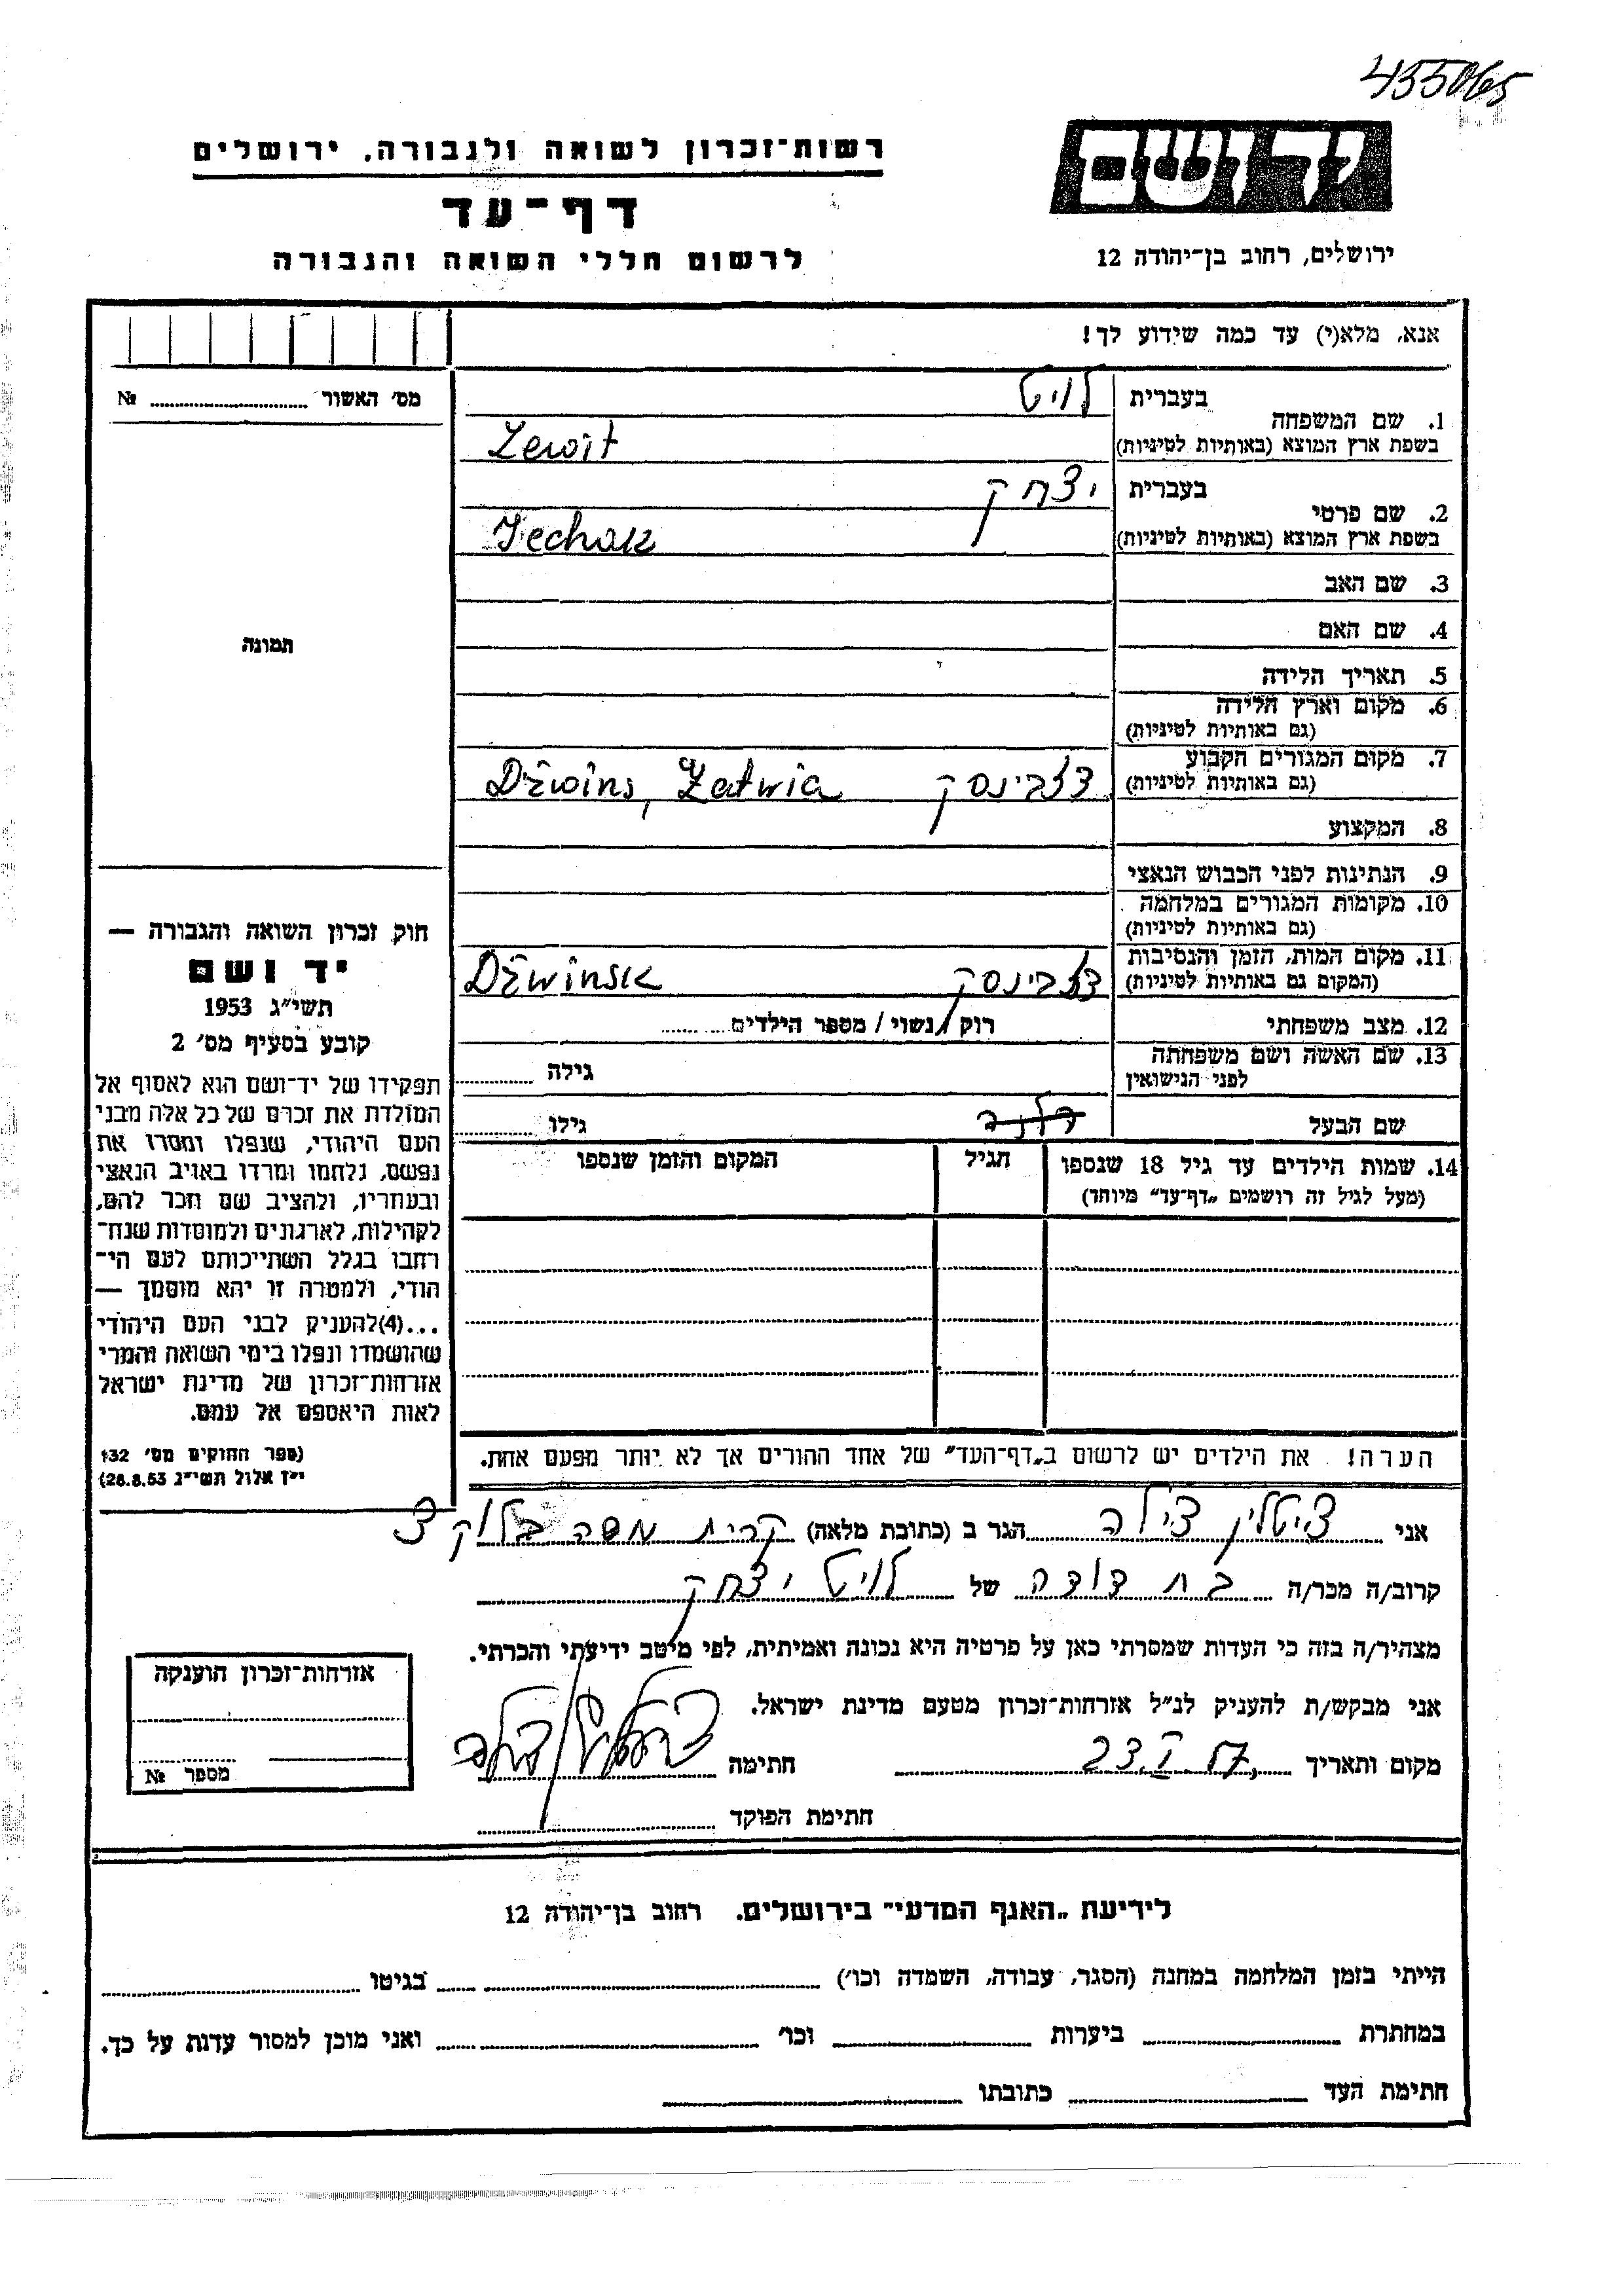 455065
רשות־זכרון לשואה ולגבורה, ירושלים
דף־עד
לרשום חללי השואה והגבורה
יד ושם
ירושלים, רחוב בן־יהודה 12
אנא, מלא(י) עד כמה שידוע לך!
מס' האשור № ........
תמונה
1. שם המשפחה
בעברית לויט
בשפת ארץ המוצא (באותיות לטיניות) Lewit
2. שם פרטי
בעברית יצחק
בשפת ארץ המוצא (באותיות לטיניות)
3. שם האב
4. שם האם
5. תאריך הלידה
6. מקום וארץ הלידה
(גם באותיות לטיניות)
7. מקום המגורים הקבוע
(גם באותיות לטיניות) דז'בינסק Dźwins, Łatwia
8. המקצוע
9. הנתינות לפני הכבוש הנאצי
10. מקומות המגורים במלחמה
(גם באותיות לטיניות)
11. מקום המות, הזמן והנסיבות
(המקום גם באותיות לטיניות) דז'בינסק Dźwinsk
12. מצב משפחתי רוק / נשוי / מספר הילדים........
13. שם האשה ושם משפחתה
לפני הנישואין
גילה ........
שם הבעל
גילו ........
14. שמות הילדים עד גיל 18 שנספו
(מעל לגיל זה רושמים „דף־עד” מיוחד)
הגיל
המקום והזמן שנספו
הערה! את הילדים יש לרשום ב„דף־העד” של אחד ההורים אך לא יותר מפעם אחת.
חוק זכרון השואה והגבורה —
יד ושם
תשי״ג 1953
קובע בסעיף מס' 2
תפקידו של יד־ושם הוא לאסוף אל
המולדת את זכרם של כל אלה מבני
העם היהודי, שנפלו ומסרו את
נפשם, נלחמו ומרדו באויב הנאצי
ובעוזריו, ולהציב שם וזכר להם,
לקהילות, לארגונים ולמוסדות שנח־
רבו בגלל השתייכותם לעם הי־
הודי, ולמטרה זו יהא מוסמך —
...(4)להעניק לבני העם היהודי
שהושמדו ונפלו בימי השואה והמרי
אזרחות־זכרון של מדינת ישראל
לאות היאספם אל עמם.
(ספר החוקים מס' 132
י״ז אלול תשי״ג 28.8.53)
אני ציטלין צילה הגר ב (כתובת מלאה) קרית משה בלוק 3
קרוב/ה מכר/ה בת דודה של לויט יצחק
מצהיר/ה בזה כי העדות שמסרתי כאן על פרטיה היא נכונה ואמיתית, לפי מיטב ידיעתי והכרתי.
אני מבקש/ת להעניק לנ״ל אזרחות־זכרון מטעם מדינת ישראל.
מקום ותאריך 23.V.57 חתימה ציטלין צילה
חתימת הפוקד ........
אזרחות־זכרון הוענקה
מספר №
לידיעת „האגף המדעי” בירושלים, רחוב בן־יהודה 12
הייתי בזמן המלחמה במחנה (הסגר, עבודה, השמדה וכו') ........ בגיטו ........
במחתרת ........ ביערות ........ וכו' ........ ואני מוכן למסור עדות על כך.
חתימת העד ........ כתובתו ........